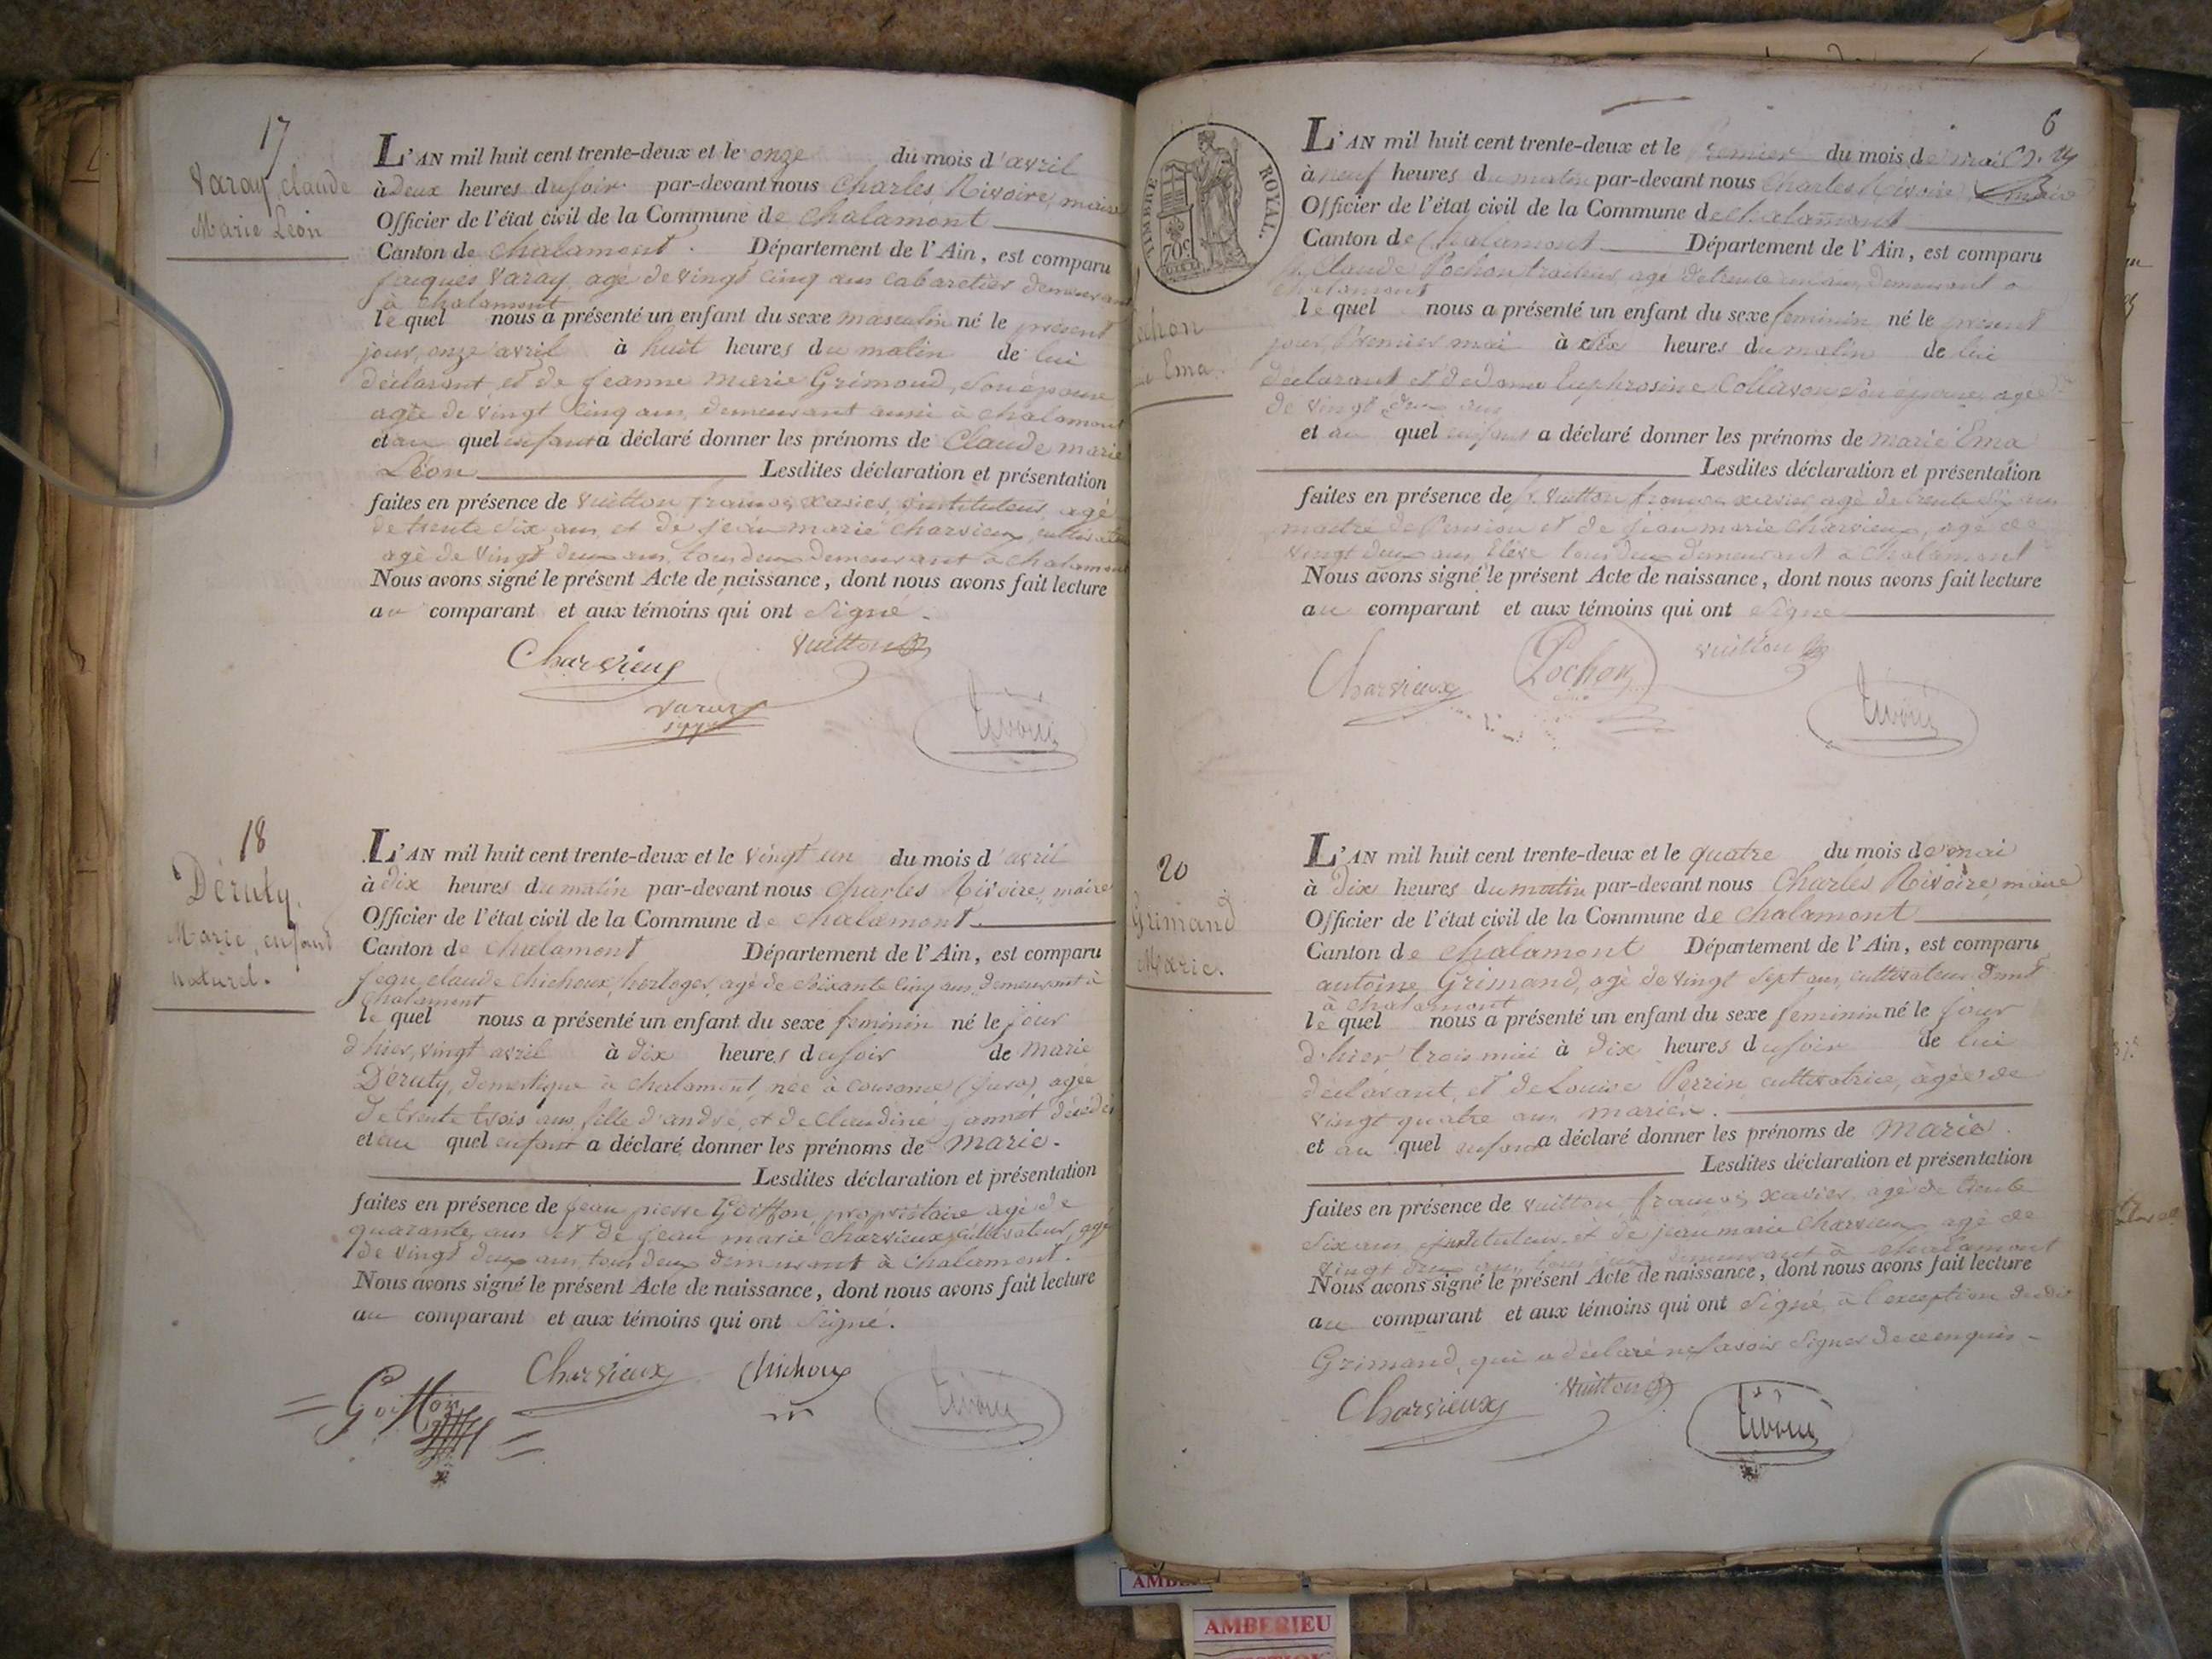 17
Varay, claude
Marie Léon
L'AN mil huit cent trente-deux et le onze du mois d'avril
à deux heures du soir par-devant nous Charles Rivoire, maire
Officier de l'état civil de la Commune de chalamont
Canton de chalamont. Département de l'Ain, est comparu
jacques Varay, agé de vingt cinq ans cabaretier demeurant
à chalamont
le quel nous a présenté un enfant du sexe masculin né le présent
jour, onze avril à huit heures du matin de lui
déclarant et de jeanne marie Grimoud, son épouse
agée de vingt cinq ans, demeurant aussi à chalamont
et au quel enfant a déclaré donner les prénoms de Claude marie
Léon Lesdites déclaration et présentation
faites en présence de Vuitton françois xavier, instituteur, agé
de trente six ans et de jean marie charvieux, cultivateur
agé de vingt deux ans, tous deux demeurant à chalamont
Nous avons signé le présent Acte de naissance, dont nous avons fait lecture
au comparant et aux témoins qui ont signé.
Charvieux Vuitton
varay
Rivoire
18
Déruty.
Marie, enfant
naturel.
L'AN mil huit cent trente-deux et le vingt un du mois d'avril
à dix heures du matin par-devant nous charles Rivoire, maire
Officier de l'état civil de la Commune de chalamont
Canton de chalamont Département de l'Ain, est comparu
jean claude chichoux, horloger, agé de soixante cinq ans, demeurant à
chalamont
le quel nous a présenté un enfant du sexe feminin né le jour
d'hier, vingt avril à dix heures du soir de marie
Déruty, domestique à chalamont, née à cousance (jura) agée
de trente trois ans, fille d'andré, et de claudine jannet décédés
et au quel enfant a déclaré donner les prénoms de marie.
Lesdites déclaration et présentation
faites en présence de jean pierre Goiffon, propriétaire agé de
quarante ans et de jean marie charvieux, cultivateur, agé
de vingt deux ans, tous deux demeurant à chalamont.
Nous avons signé le présent Acte de naissance, dont nous avons fait lecture
au comparant et aux témoins qui ont signé.
Goiffon Charvieux Chichoux Rivoire
6
TIMBRE ROYAL.
70c.
L'AN mil huit cent trente-deux et le premier du mois de mai
à neuf heures du matin par-devant nous Charles Rivoire, maire
Officier de l'état civil de la Commune de chalamont
Canton de chalamont Département de l'Ain, est comparu
Claude Pochon agé de trente ans, demeurant à
chalamont
le quel nous a présenté un enfant du sexe feminin né le présent
jour, premier mai à six heures du matin de lui
déclarant et de dame Euphrosine Collavon son épouse, agée
de vingt deux ans
et au quel enfant a déclaré donner les prénoms de marie Ema
Lesdites déclaration et présentation
faites en présence de Vuitton françois xavier, agé de trente six ans
maitre de pension et de jean marie charvieux, agé de
vingt deux ans, élève tous deux demeurant à chalamont
Nous avons signé le présent Acte de naissance, dont nous avons fait lecture
au comparant et aux témoins qui ont signé
Charvieux Pochon Vuitton
Rivoire
ochon
Ema.
20
Grimand
Marie.
L'AN mil huit cent trente-deux et le quatre du mois de mai
à dix heures du matin par-devant nous Charles Rivoire, maire
Officier de l'état civil de la Commune de chalamont
Canton de chalamont Département de l'Ain, est comparu
antoine Grimand, agé de vingt sept ans, cultivateur demt
à chalamont
le quel nous a présenté un enfant du sexe feminin né le jour
d'hier trois mai à dix heures du soir de lui
déclarant, et de Louise Perrin, cultivatrice, agée de
vingt quatre ans mariés.
et au quel enfant a déclaré donner les prénoms de marie.
Lesdites déclaration et présentation
faites en présence de Vuitton françois xavier, agé de trente
six ans instituteur, et de jean marie charvieux agé de
vingt deux ans, tous deux demeurant à chalamont
Nous avons signé le présent Acte de naissance, dont nous avons fait lecture
au comparant et aux témoins qui ont signé, à l'exception dudit
Grimand, qui a déclaré ne savoir signer de ce enquis.
Charvieux Vuitton Rivoire
AMBERIEU